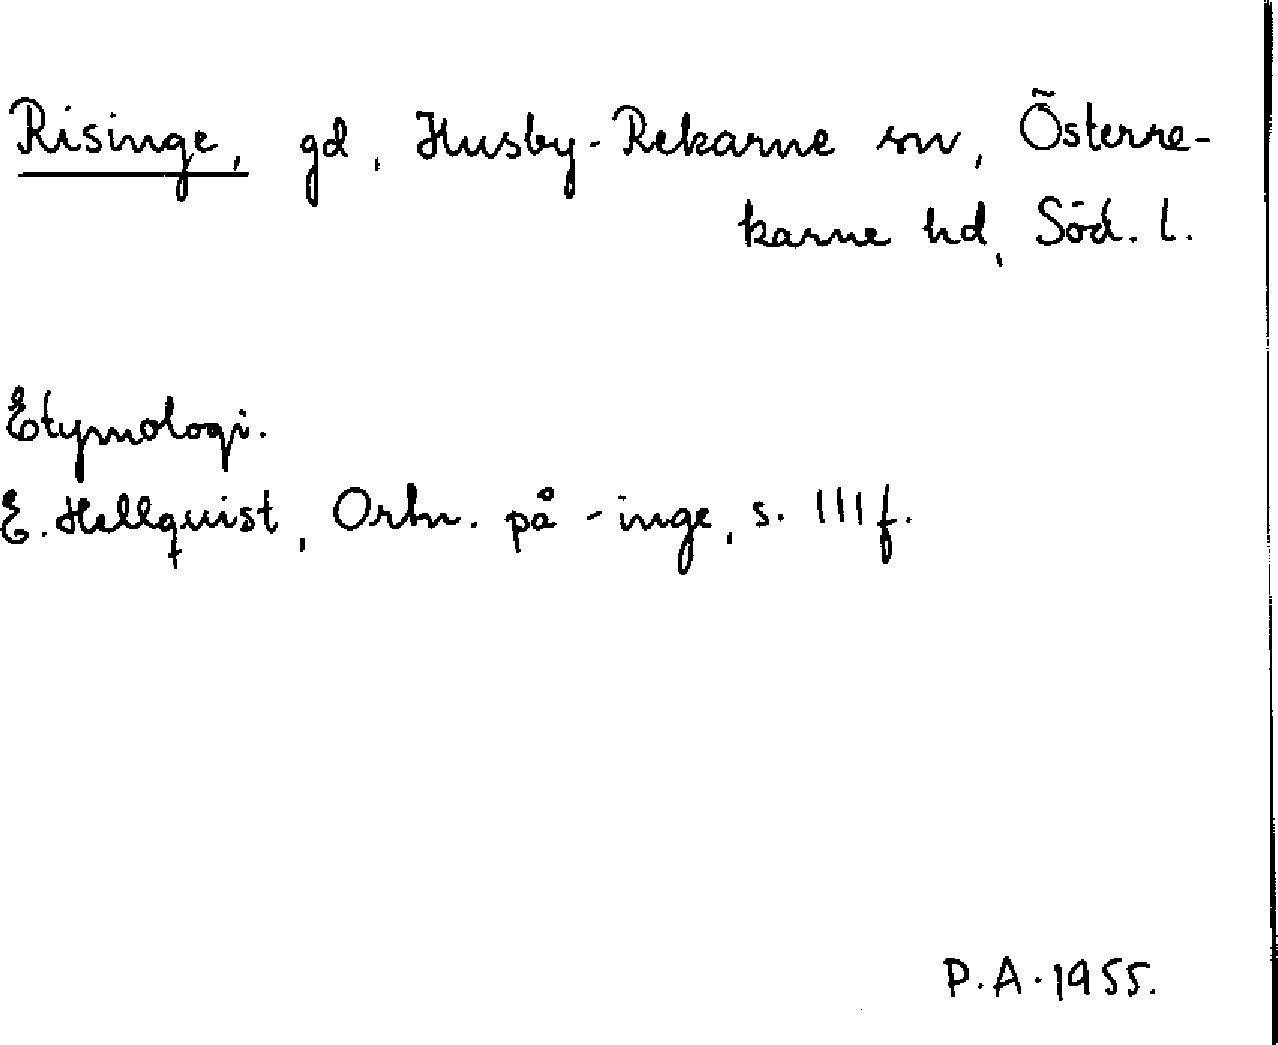 Risinge, gd, Husby-Rekarne sn, Österre-
karne hd, Söd. l.
Etymologi.
E. Hellquist, Ortn. på -inge, s. 111 f.
P.A. 1955.